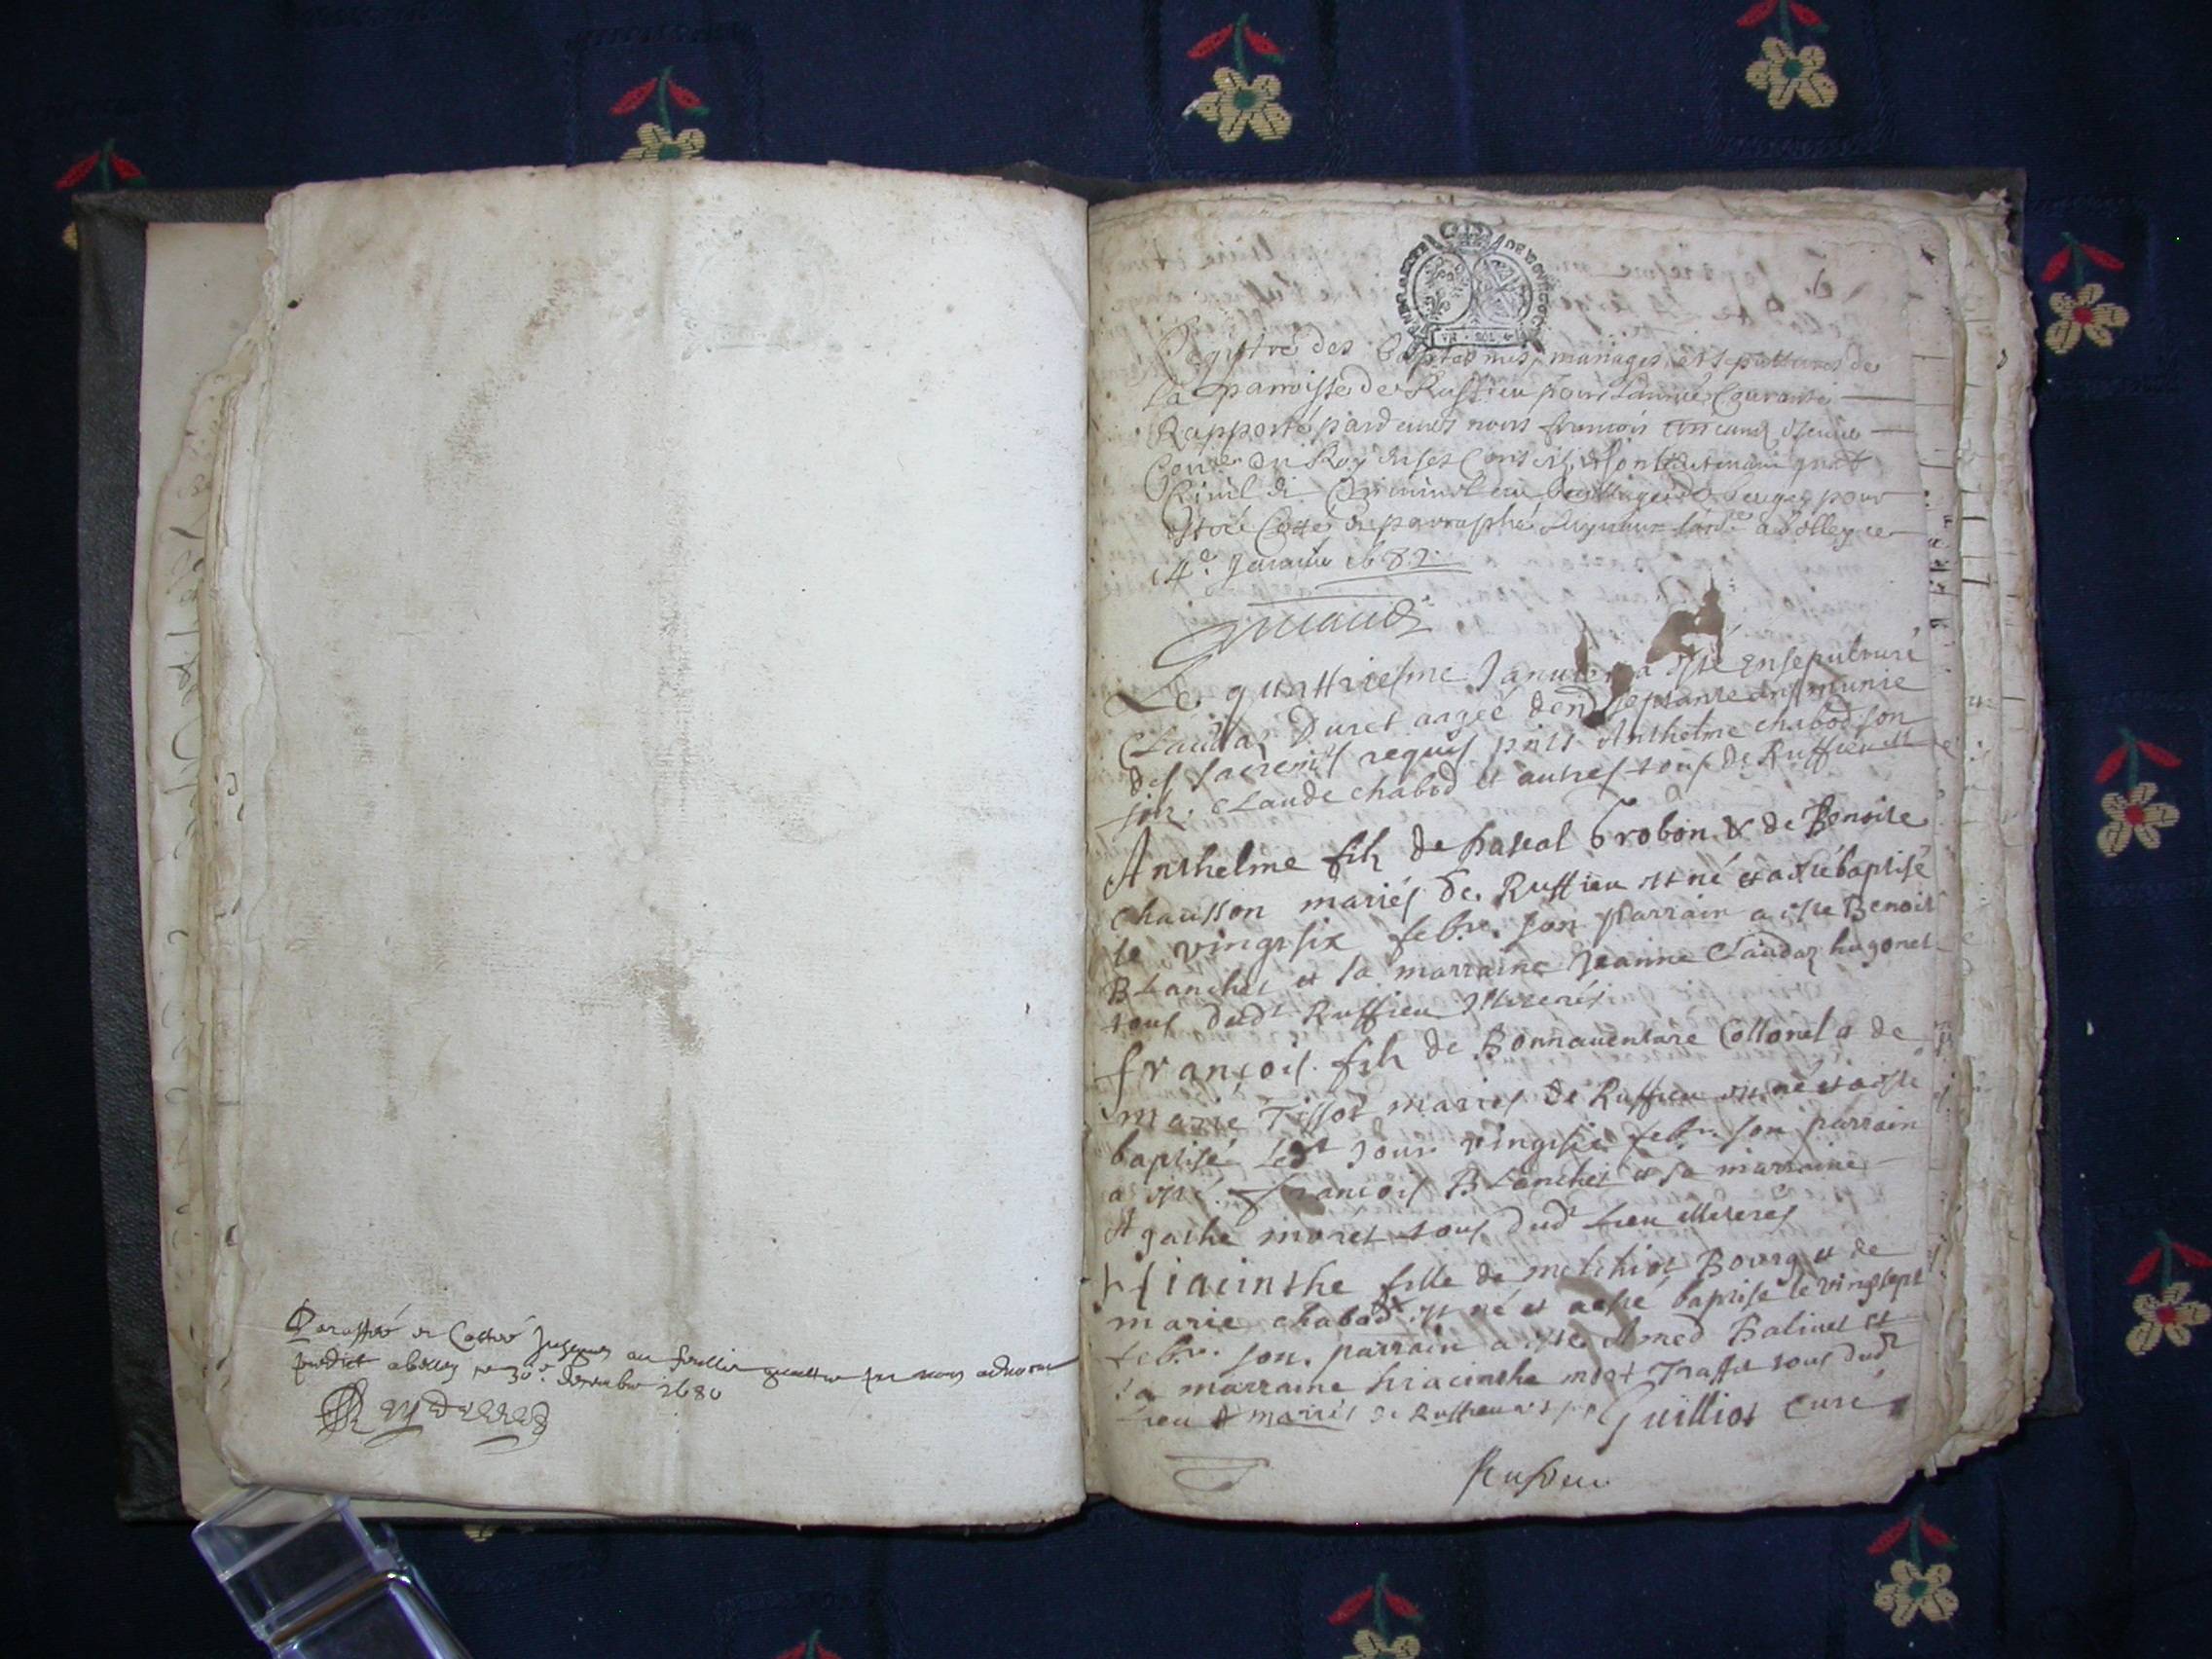 Paraffé et Cotté Jusques au feuillet quattre par nous advocat
susdict a belley ce 30e. decembre 1680
DE BOURGOGNE
Registre des Baptesmes, mariages, et sepultures de
La parroisse de Ruffieu pour l'année Courante
Rapporté pardevant nous françois
Conser. du Roy en ses Conseils, et son lieutenant gnal
Civil et Criminel au bailliage de beugey pour
estre Cotté et parraphé a Belley ce
14e. Janvier 1682
Le quattriesme Janvier a esté Ensepulturé
Claudaz Duret aagéé denv. septante ans munie
des sacremts requis pnts Anthelme chabod son
fils, Claude chabod et autres tous de Ruffieu
Anthelme fils de pascal Brobon & de Benoite
chausson mariés de Ruffieu est né et a esté baptisé
le vingtsix febvr. son parrain a este Benoit
Blanchet et sa marraine Jeanne Claudaz hugonet
tous dudt Ruffieu illiterés
françois fils de Bonnaventure Collonel et de
marie Tissot mariés de Ruffieu est né et a esté
baptisé led jour vingtsix febvr. son parrain
a esté françois Blanchet et sa marraine
Agathe moret tous dudt Lieu illiterés
Hiacinthe fille de melchiot Bourg et de
marie chabod est né et a esté baptisé le vingtsept
febvr. son parrain a este Amed Balinet et
sa marraine hiacinthe Traffet tous dudt
Lieu & mariés de Ruffieu Guilliot Curé